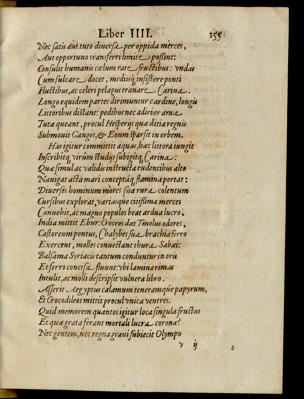 Liber IIII. 255
Nec satis aut tuto diversa per oppida merces,
Aut opportuno transferri limite possint:
Consulit humanis cœlum rate fructibus: undas
Cum sulcare docet, mediisq́ insistere ponti
Fluctibus, ac celeri pelagus tranare Carina.
Longo equidem partes dirimuntur cardine, longis
Littoribus distant: pedibus nec adirier arva
Tuta queant, procul Hesperijs quæ ditia regnis
Submovit Ganges, & Eoum sparsit in orbem.
Has igitur committit aquas, hac littora iungit
Inscribitq́ virûm studijs subigitq́ Carina:
Quæ simul ac validis instructa rudentibus alto
Navigat acta mari conceptaq́ flamina portat:
Diversos hominum mores sua rura colentum
Cursibus explorat, variasque citissima merces
Convehit, ac magno populos beat ardua lucro.
India mittit Ebur: Croceos dat Tmolus odores,
Castoreum pontus, Chalybes sua brachia ferro
Exercent, molles convectant thura Sabæi:
Balsama Syriacis tantum conduntur in oris
Et ferro concisa fluunt: ubi lamina rimas
Intulit, ac molli descripsit vulnera libro.
Asserit Aegyptus calamum teneramque papyrum,
Et Crocodilos mittit procul unica ventres.
Quid memorem quantos igitur loca singula fructus
Et quæ grata ferant mortali lucra coronæ?
Nec gentem, nec regna gravi subiecit Olympo
v ij